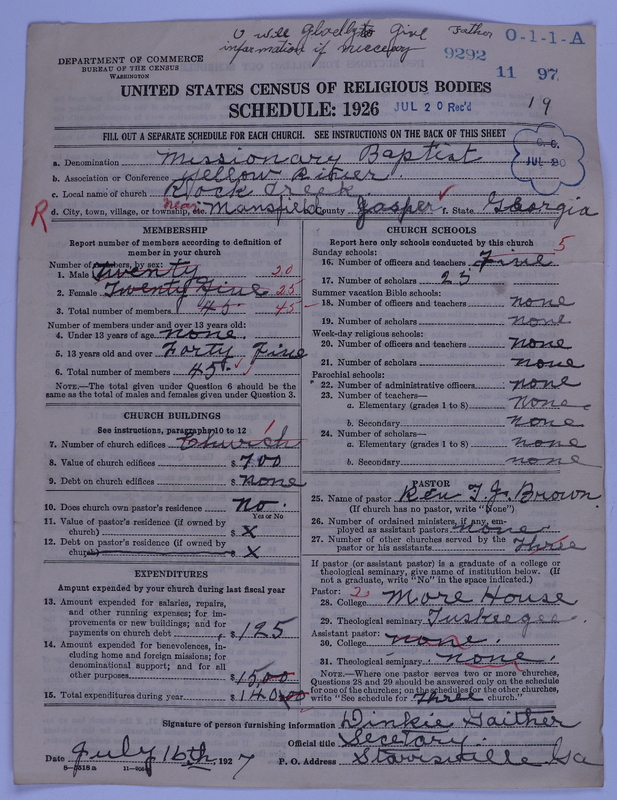 O will gladly to give
information if nessecery
Father
0-1-1-A
9292
11 97
DEPARTMENT OF COMMERCE
BUREAU OF THE CENSUS
WASHINGTON
UNITED STATES CENSUS OF RELIGIOUS BODIES
SCHEDULE: 1926
JUL 20 Rec'd
19
FILL OUT A SEPARATE SCHEDULE FOR EACH CHURCH. SEE INSTRUCTIONS ON THE BACK OF THIS SHEET
JUL 20
a. Denomination Missionary Baptist
b. Association or Conference Yellow River
c. Local name of church Rock Creek
R d. City, town, village, or township, etc. near Mansfield County Jasper f. State Georgia
MEMBERSHIP
Report number of members according to definition of
member in your church
Number of members, by sex:
1. Male Twenty 20
2. Female Twenty Five 25
3. Total number of members 45 45
Number of members under and over 13 years old:
4. Under 13 years of age none.
5. 13 years old and over Forty Five
6. Total number of members 45.
NOTE.—The total given under Question 6 should be the
same as the total of males and females given under Question 3.
CHURCH BUILDINGS
See instructions, paragraphs 10 to 12
7. Number of church edifices Church 1
8. Value of church edifices $ 700
9. Debt on church edifices $ none
10. Does church own pastor's residence No.
Yes or No
11. Value of pastor's residence (if owned by
church) $ X
12. Debt on pastor's residence (if owned by
church) $ X
EXPENDITURES
Amount expended by your church during last fiscal year
13. Amount expended for salaries, repairs,
and other running expenses; for im-
provements or new buildings; and for
payments on church debt $ 125
14. Amount expended for benevolences, in-
cluding home and foreign missions; for
denominational support; and for all
other purposes $ 15.00
15. Total expenditures during year $ 140.00
CHURCH SCHOOLS
Report here only schools conducted by this church
Sunday schools:
16. Number of officers and teachers Five 5
17. Number of scholars 25
Summer vacation Bible schools:
18. Number of officers and teachers none
19. Number of scholars none
Week-day religious schools:
20. Number of officers and teachers none
21. Number of scholars none
Parochial schools:
22. Number of administrative officers none
23. Number of teachers—
a. Elementary (grades 1 to 8) none
b. Secondary none
24. Number of scholars—
a. Elementary (grades 1 to 8) none
b. Secondary none
PASTOR
25. Name of pastor Rev T. J. Brown.
(If church has no pastor, write "None")
26. Number of ordained ministers, if any, em-
ployed as assistant pastors none.
27. Number of other churches served by the
pastor or his assistants Three
If pastor (or assistant pastor) is a graduate of a college or
theological seminary, give name of institution below. (If
not a graduate, write "No" in the space indicated.)
Pastor:
28. College More House
29. Theological seminary Tuskeegee
Assistant pastor:
30. College none.
31. Theological seminary none.
NOTE.—Where one pastor serves two or more churches,
Questions 28 and 29 should be answered only on the schedule
for one of the churches; on the schedules for the other churches,
write "See schedule for Three church."
Signature of person furnishing information Dinkie Gaither
Official title Secetary.
Date July 16th, 1927 P. O. Address Starrsville Ga